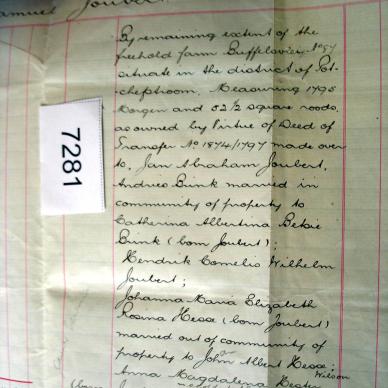 Samuel Joubert
By remaining extent of the
freehold farm Buffelsvlei No 57
situate in the district of Pot-
chefstroom, Measuring 1795
Morgen and 52 1/2 square roods,
as owned by Virtue of Deed of
Transfer No 1874/1797 made over
to, Jan Abraham Joubert,
Andries Brink married in
community of property to
Catherina Albertina Betsie
Brink (born Joubert);
Hendrik Cornelis Wilhelm
Joubert;
Johanna Maria Elizabeth
Rosina Hesse (born Joubert)
married out of community of
property to John Albert Hesse;
Wilson
Anna Magdalena
(born
7281